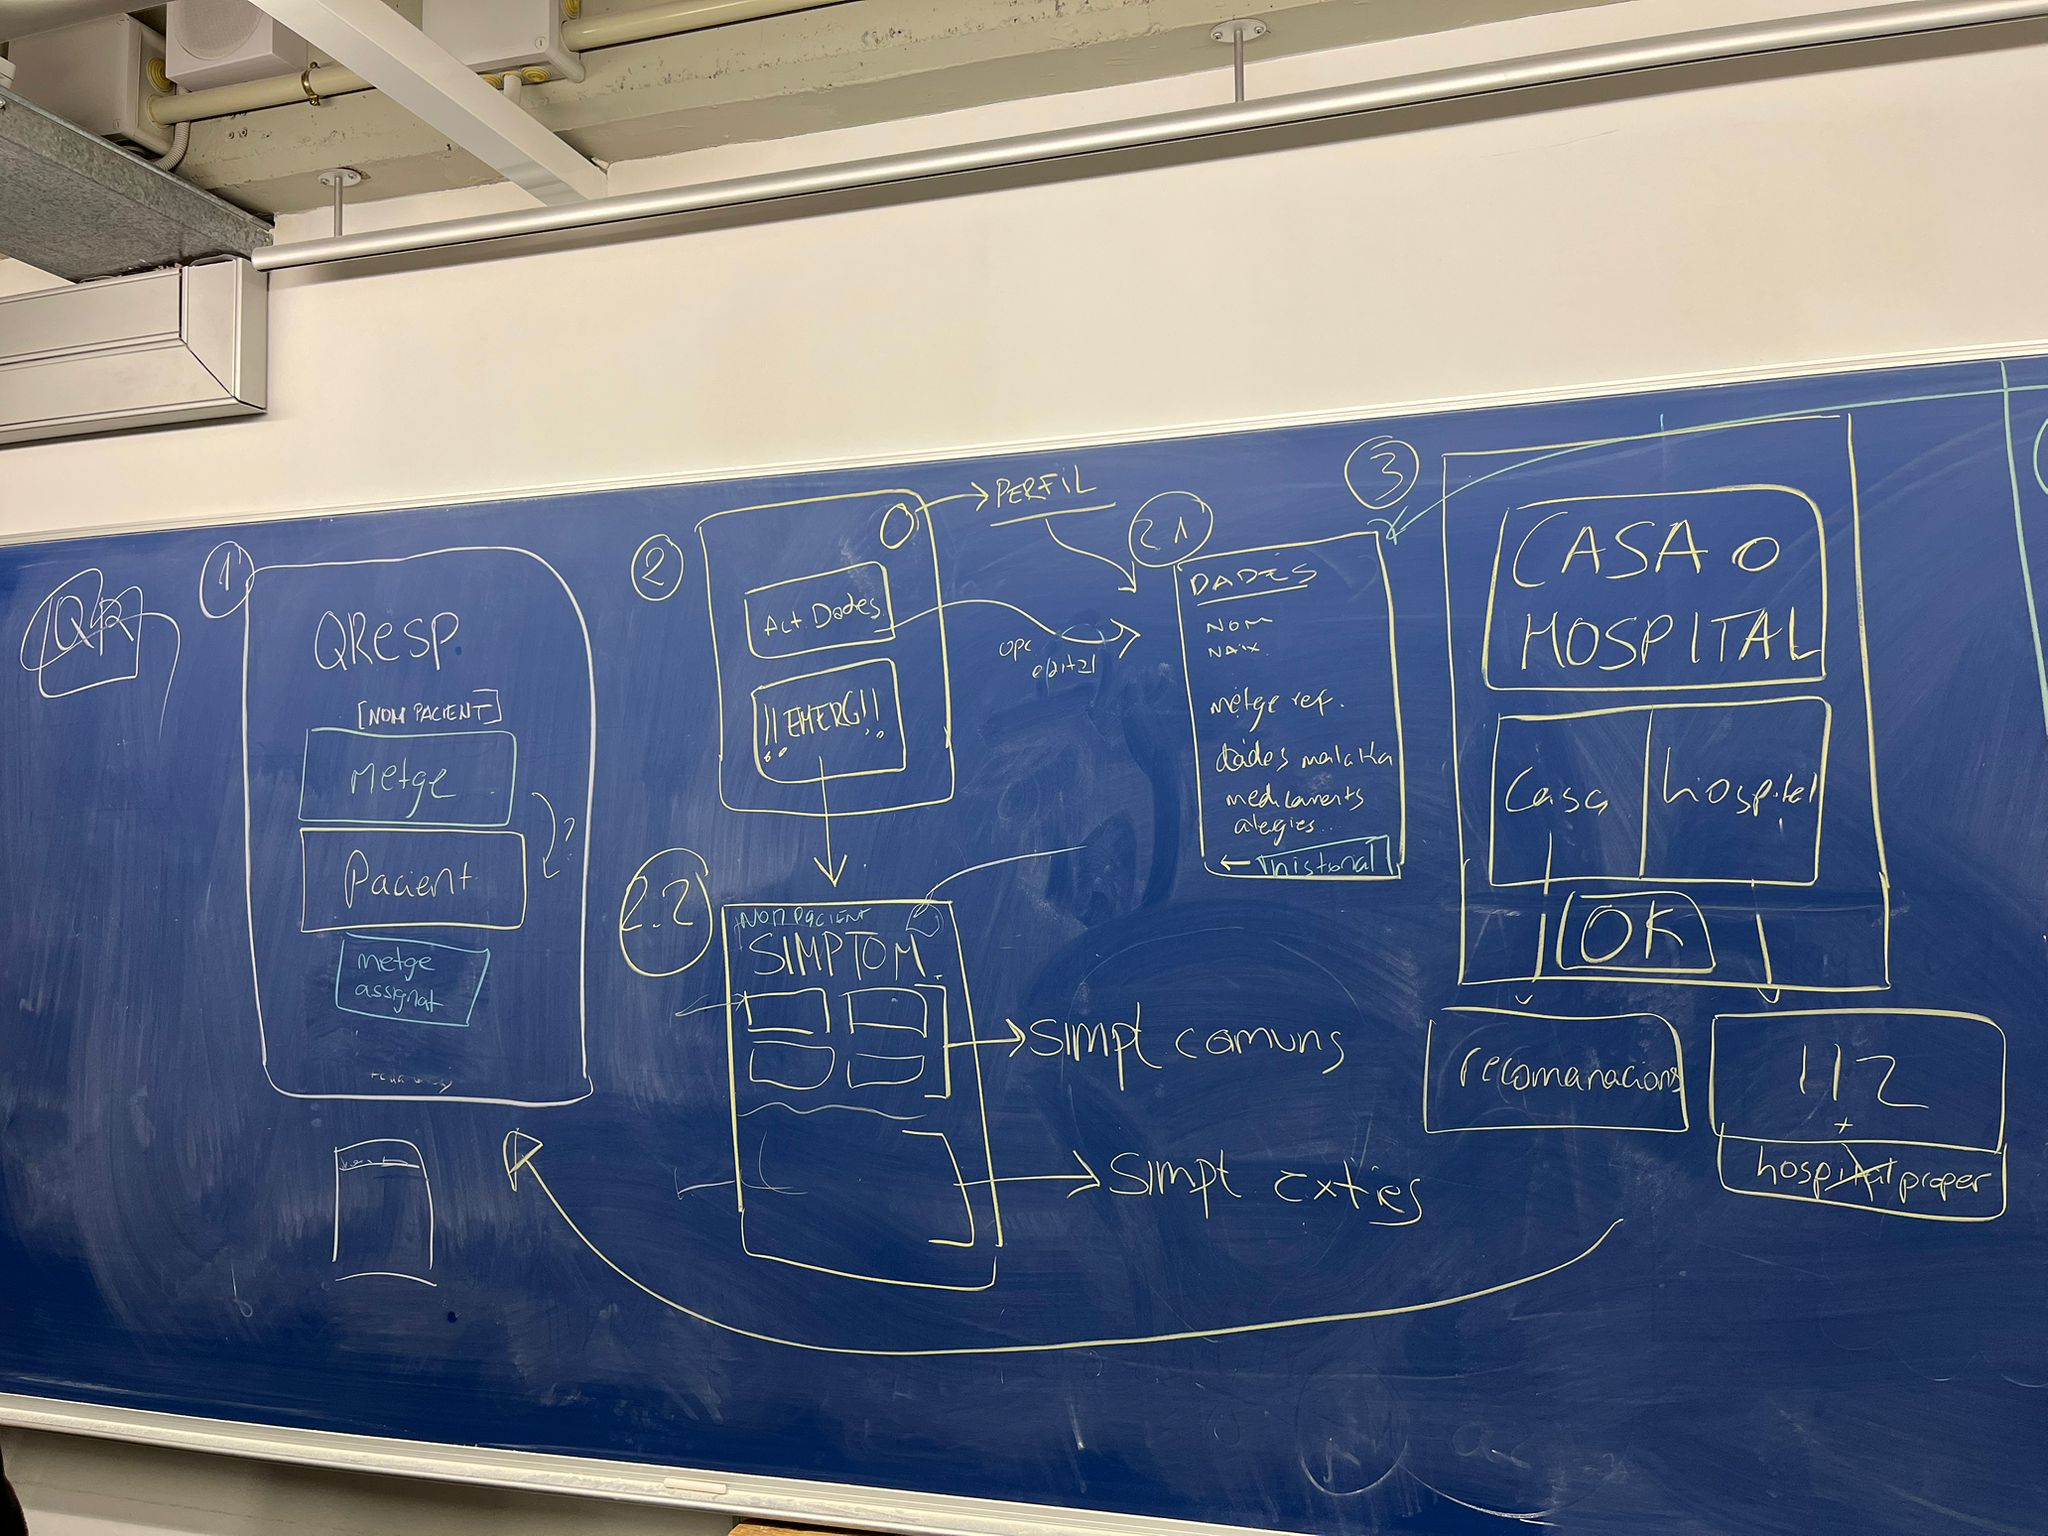 QR
1
QRESP
[NOM PACIENT]
Metge
?
Pacient
metge
assignat
2
PERFIL
Act. Dades
!!EMERG!!
opc
2.1
DADES
NOM
NAIX.
metge ref.
dades malaltia
medicaments
alergies..
← historial
2.2
NOM PACIENT
SIMPTOM.
simpt comuns
simpt
3
CASA O
HOSPITAL
Casa
hospital
OK
recomanacions
112
+
hospital proper